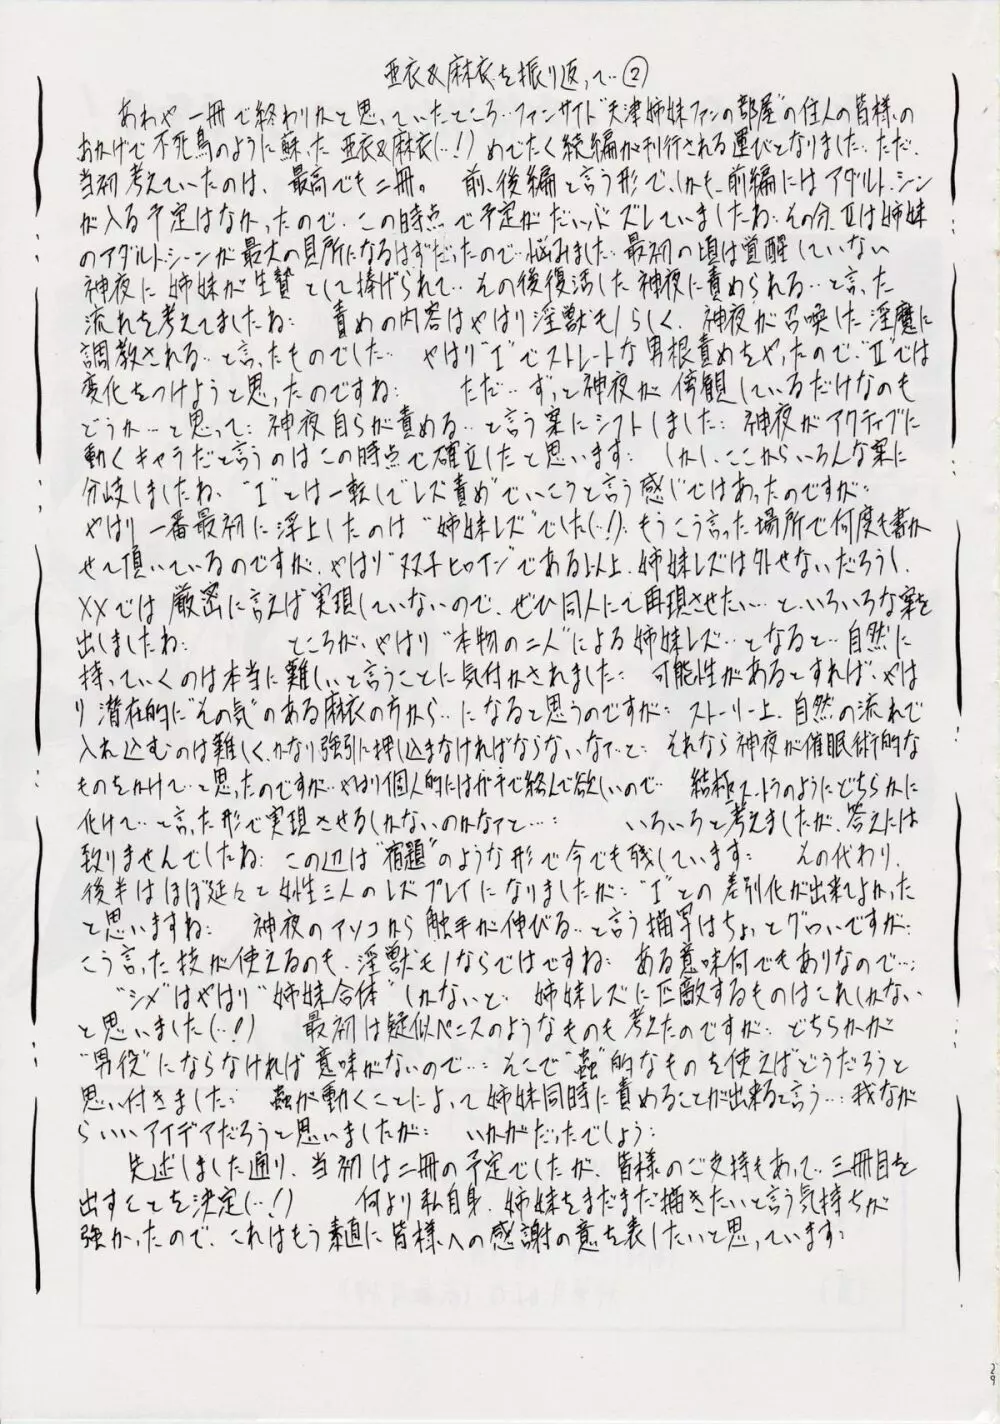 亜衣&麻衣を振り返って…②
あわや一冊で終わりかと思っていたところ…ファンサイト"天津姉妹ファンの部屋"の住人の皆様の
おかげで不死鳥のように蘇った亜衣&麻衣(…!) めでたく続編が刊行される運びとなりました… ただ、
当初考えていたのは、最高でも二冊。 前、後編と言う形で、しかも、前編にはアダルト・シーン
が入る予定はなかったので、この時点で予定がだいぶズレていましたね… その分、Ⅱは姉妹
のアダルト・シーンが最大の見所になるはずだったので…悩みました… 最初の頃は覚醒していない
神夜に姉妹が生贄として捧げられて… その後復活した神夜に責められる…と言った
流れを考えてましたね… 責めの内容はやはり淫獣モノらしく、神夜が召喚した淫魔に
調教される…と言ったものでした… やはり"Ⅰ"でストレートな男根責めをやったので、"Ⅱ"では
変化をつけようと思ったのですね… ただ… ずっと神夜が傍観しているだけなのも
どうか…と思って… 神夜自らが責める…と言う案にシフトしました… 神夜がアクティブに
動くキャラだと言うのはこの時点で確立したと思います… しかし、ここからいろんな案に
分岐しましたね、"Ⅰ"とは一転して"レズ責め"でいこうと言う感じではあったのですが…
やはり一番最初に浮上したのは"姉妹レズ"でした(…!)… もうこう言った場所で何度も書か
せて頂いているのですが、やはり"双子ヒロイン"である以上、姉妹レズは外せないだろうし、
XXでは厳密に言えば実現していないので、ぜひ同人にて再現させたい… と、いろいろな案を
出しましたね… ところが、やはり"本物の二人"による姉妹レズ…となると… 自然に
持っていくのは本当に難しいと言うことに気付かされました… 可能性があるとすれば、やは
り潜在的に"その気"のある麻衣の方から…になると思うのですが… ストーリー上、自然の流れで
入れ込むのは難しく、かなり強引に押し込まなければならないなァ…と… それなら神夜が催眠術的な
ものをかけて…と思ったのですが…やはり個人的にはガチで絡んで欲しいので… 結極スートラのようにどちらかに
化けて…と言った形で実現させるしかないのかなァと…… いろいろと考えましたが、答えには
致りませんでしたね… この辺は"宿題"のような形で今でも残しています… その代わり、
後半はほぼ延々と女性三人のレズプレイになりましたが… "Ⅰ"との差別化が出来てよかった
と思いますね… 神夜のアソコから触手が伸びる…と言う描写はちょっとグロいですが…
こう言った技が使えるのも、淫獣モノならではですね… ある意味何でもありなので……
"シメ"はやはり"姉妹合体"しかないと… 姉妹レズに匹敵するものはこれしかない
と思いました(…!) 最初は疑似ペニスのようなものも考えたのですが… どちらかが
"男役"にならなければ意味がないので…… そこで"蟲"的なものを使えばどうだろうと
思い付きました… 蟲が動くことによって姉妹同時に責めることが出来ると言う…… 我なが
らいいアイデアだろうと思いましたが… いかがだったでしょう…
先述しました通り、当初は二冊の予定でしたが、皆様のご支持もあって、三冊目を
出すことを決定(…!) 何より私自身、姉妹をまだまだ描きたいと言う気持ちが
強かったので、これはもう素直に皆様への感謝の意を表したいと思っています…
29